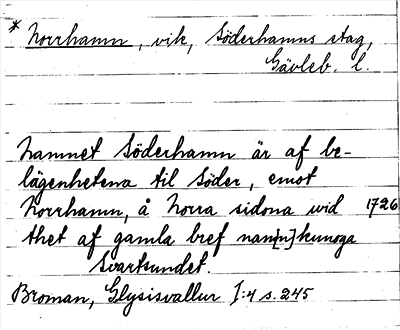 * Norrhamn, vik, Söderhamns stag,
Gävleb. l.
Namnet Söderhamn är af be-
lägenhetena til Söder, emot
Norrhamn, å Norra sidona wid 1726
thet af gamla bref nam[n]kunoga
Svartsundet.
Broman, Glysisvallur I:4 s. 245